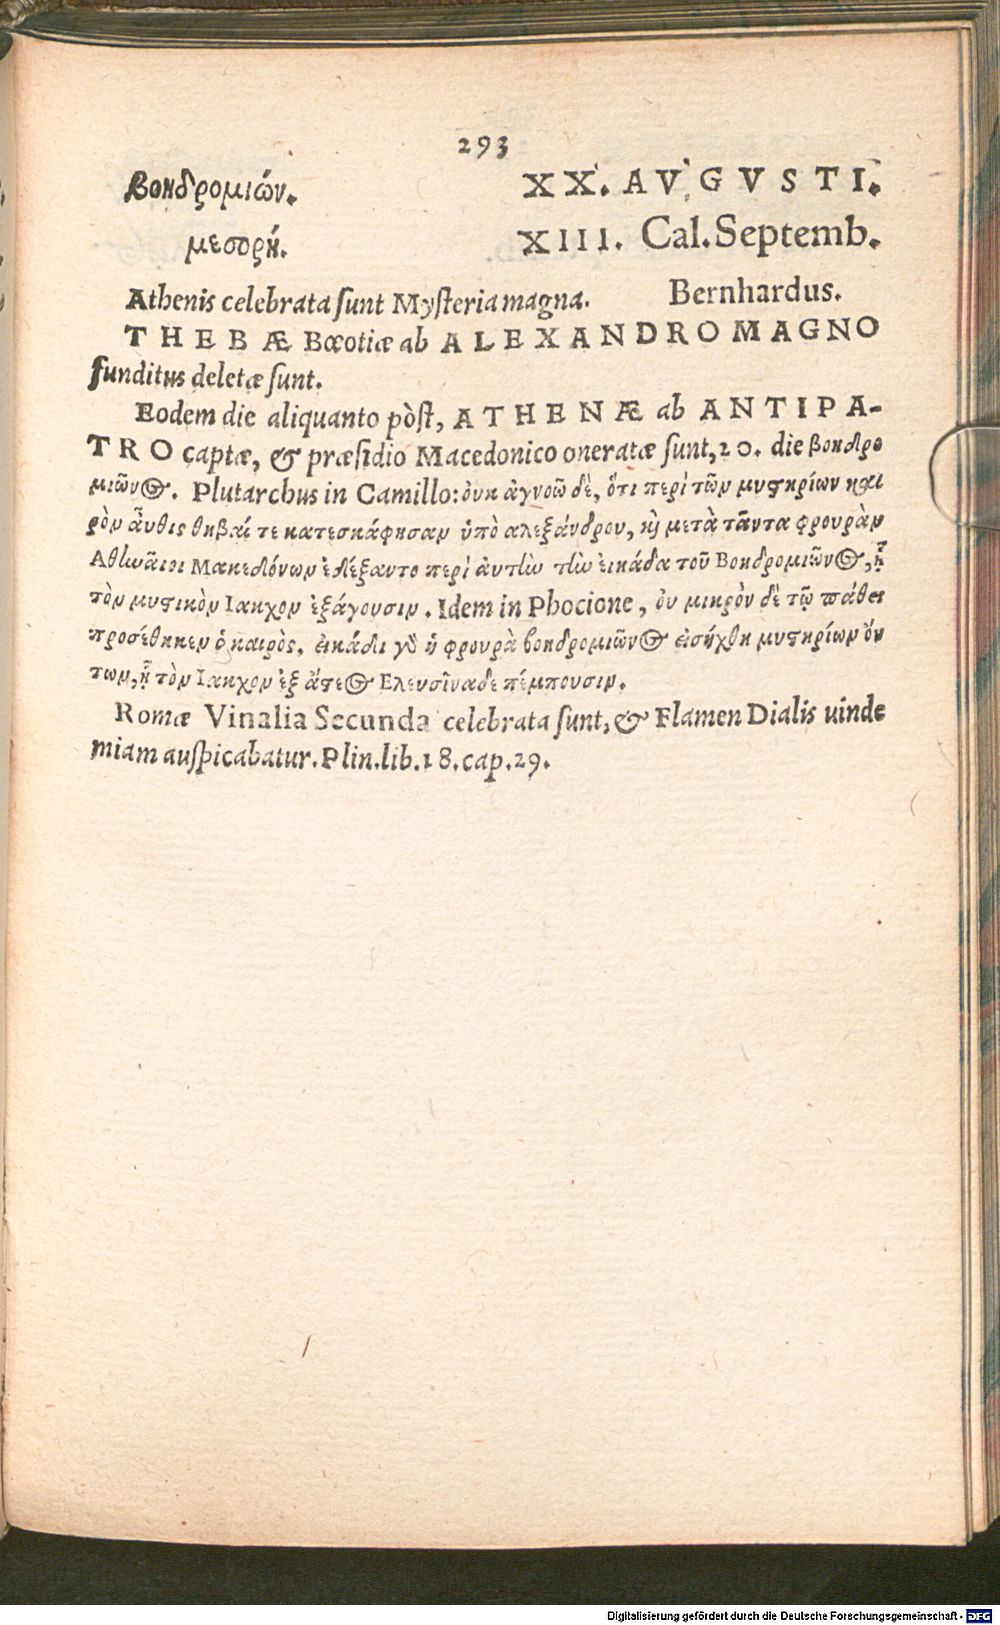 293
Βοηδρομιών. XX. AVGVSTI.
μεσορή. XIII. Cal. Septemb.
Athenis celebrata sunt Mysteria magna. Bernhardus.
THEBÆ Bœotiæ ab ALEXANDRO MAGNO
funditus deletæ sunt.
Eodem die aliquanto pòst, ATHENÆ ab ANTIPA-
TRO captæ, & præsidio Macedonico oneratæ sunt, 20. die βοηδρο
μιῶνος. Plutarchus in Camillo: ὀυκ ἀγνοῶ δὲ, ὅτι περὶ τῶν μυστηρίων και
ρὸν ἆυθις θηβαί τε κατεσκάφησαν ὑπὸ αλεξάνδρου, καὶ μετὰ τᾶντα φρουρὰν
Αθωᾶιοι Μακεδόνων ἐδέξαντο περὶ ἀυτὼ τὼ ἐικάδα τοῦ Βοηδρομιῶνος, ᾗ
τὸν μυστικὸν Ιακχον ἐξάγουσιν. Idem in Phocione, ὀυ μικρὸν δὲ τῷ πάθει
προσέθηκεν ὁ καιρὸς, ἐικάδι γὸ ἡ φρουρὰ βοηδρομιῶνος ἐισήχθη μυστηρίων ὄν
των, ᾗ τὸν Ιακχον ἐξ ἄστεος Ελευσῖναδε πέμπουσιν.
Romæ Vinalia Secunda celebrata sunt, & Flamen Dialis uinde
miam auspicabatur. Plin. lib. 18. cap. 29.
Digitalisierung gefördert durch die Deutsche Forschungsgemeinschaft - DFG